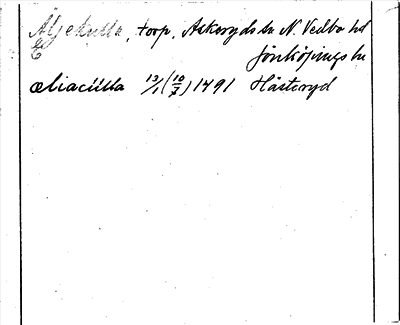 Äljekulla, torp, Askeryds sn N. Vedbo hd
Jönköpings ln
æliaculla 13/1 (10/7) 1491 Hästeryd